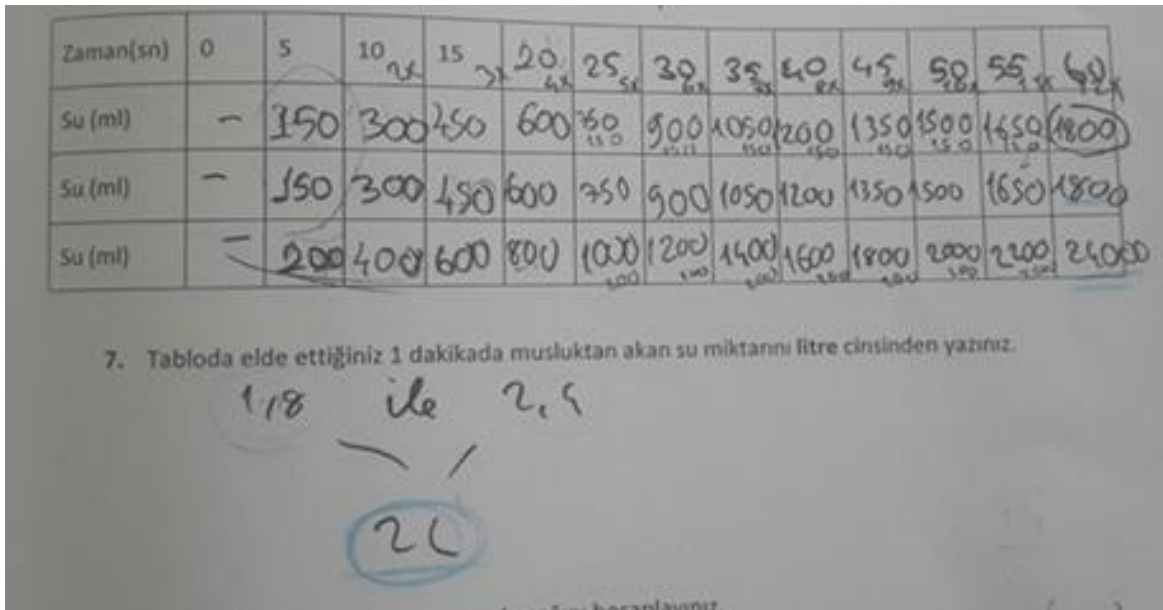 Zaman(sn) 0 5 10 2x 15 3x 20 4x 25 5x 30 6x 35 40 8x 45 9x 50 55 60
Su (ml) - 150 300 450 600 750 900 1050 1200 1350 1500 1650 1800
150 150 150 150 150 150
Su (ml) - 150 300 450 600 750 900 1050 1200 1350 1500 1650 1800
Su (ml) - 200 400 600 800 1000 1200 1400 1600 1800 2000 2200 24000
200 200 200 200 200 200
7. Tabloda elde ettiğiniz 1 dakikada musluktan akan su miktarını litre cinsinden yazınız.
1,8 ile 2,4
2L
hesaplayınız.